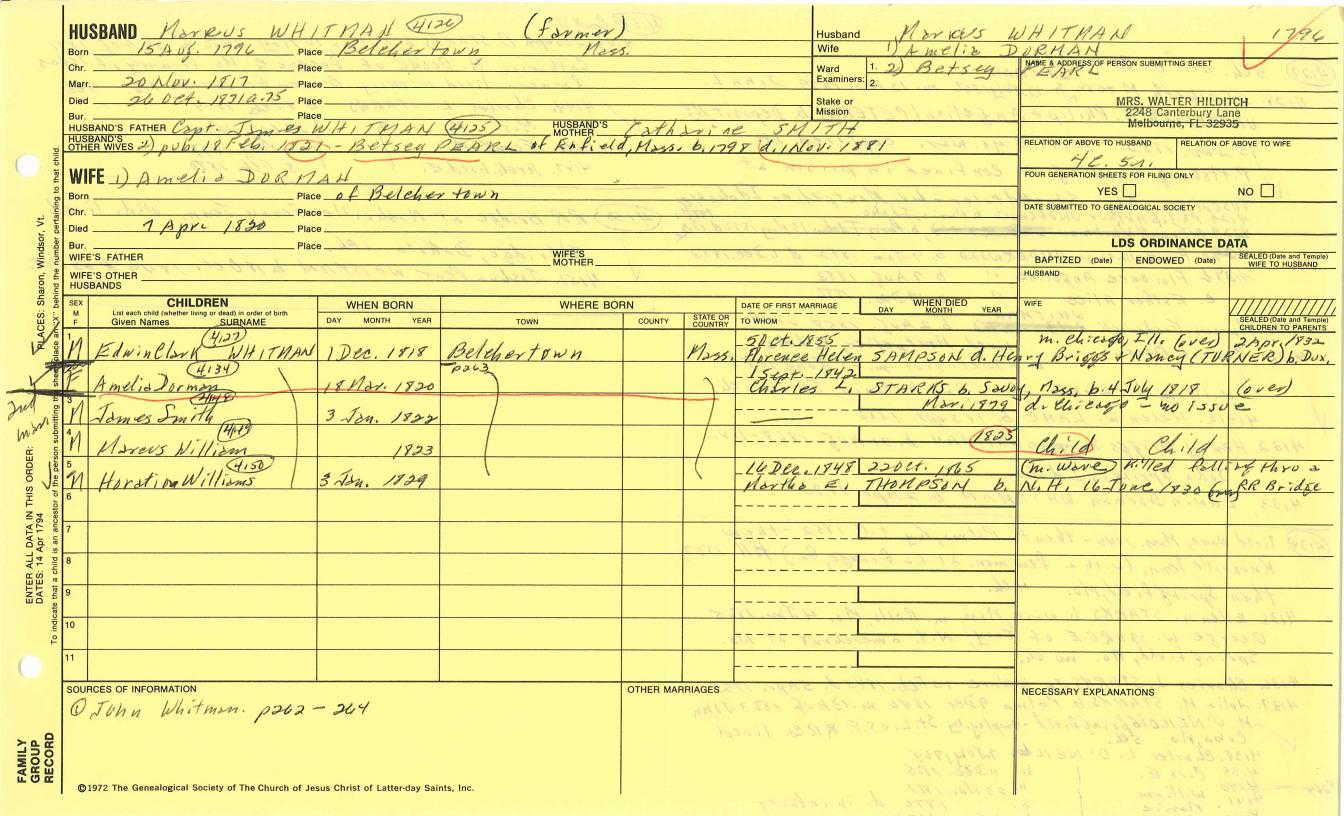 HUSBAND Marcus WHITMAN 4126 (farmer)
Born 15 Aug. 1796 Place Belchertown Mass.
Chr. Place
Marr. 20 Nov. 1817 Place
Died 26 Oct. 1871 a.75 Place
Bur. Place
HUSBAND'S FATHER Capt. James WHITMAN 4125 HUSBAND'S MOTHER Catharine SMITH
HUSBAND'S OTHER WIVES 2) pub. 18 Feb. 1821 - Betsey PEARL of Enfield, Mass. b. 1798 d. 1 Nov. 1881
WIFE 1) Amelia DORMAN
Born Place of Belchertown
Chr. Place
Died 7 Apr. 1820 Place
Bur. Place
WIFE'S FATHER WIFE'S MOTHER
WIFE'S OTHER HUSBANDS
Husband Marcus WHITMAN 1796
Wife 1) Amelia DORMAN
Ward Examiners: 1. 2) Betsey PEARL
2.
Stake or Mission
NAME & ADDRESS OF PERSON SUBMITTING SHEET
MRS. WALTER HILDITCH
2248 Canterbury Lane
Melbourne, FL 32935
RELATION OF ABOVE TO HUSBAND RELATION OF ABOVE TO WIFE
4C. 5r.
FOUR GENERATION SHEETS FOR FILING ONLY
YES NO
DATE SUBMITTED TO GENEALOGICAL SOCIETY
LDS ORDINANCE DATA
BAPTIZED (Date) ENDOWED (Date) SEALED (Date and Temple) WIFE TO HUSBAND
HUSBAND
WIFE
SEALED (Date and Temple) CHILDREN TO PARENTS
SEX M F CHILDREN WHEN BORN WHERE BORN DATE OF FIRST MARRIAGE WHEN DIED
List each child (whether living or dead) in order of birth
Given Names SURNAME DAY MONTH YEAR TOWN COUNTY STATE OR COUNTRY TO WHOM DAY MONTH YEAR
4127 5 Oct. 1855 m. Chicago, Ill. (over) 2 Apr. 1832
M Edwin Clark WHITMAN 1 Dec. 1818 Belchertown Mass. Florence Helen SAMPSON d. Henry Briggs & Nancy (TURNER) b. Dux.
4134 p263 1 Sept. 1842
F Amelia Dorman 18 Mar. 1820 Charles L. STARKS b. Savoy, Mass. b. 4 July 1818 (over)
3 4148 Mar. 1879 d. Chicago - no issue
M James Smith 3 Jan. 1822
4 4149 1825 Child Child
M Marcus William 1823
5 4150 16 Dec. 1848 22 Oct. 1865 (m. Ware) Killed falling thro a
M Horation Williams 3 Jan. 1829 Martha E. THOMPSON b. N.H. 16 June 1830 (over) RR Bridge
6
7
8
9
10
11
2nd marr
SOURCES OF INFORMATION
① John Whitman. p262 - 264
OTHER MARRIAGES
NECESSARY EXPLANATIONS
©1972 The Genealogical Society of The Church of Jesus Christ of Latter-day Saints, Inc.
FAMILY GROUP RECORD
ENTER ALL DATA IN THIS ORDER:
DATES: 14 Apr 1794
PLACES: Sharon, Windsor, Vt.